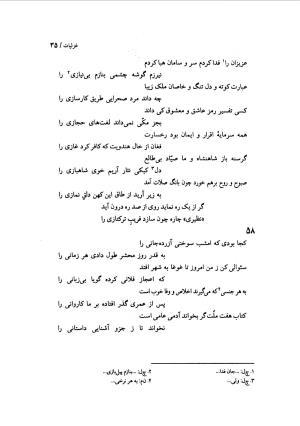 غزلیات / ۳۵
عزیزان را۱ فدا کردم سر و سامان هبا کردم
نیرزم گوشه چشمی بنازم بی‌نیازی۲ را
عبارت کوته و دل تنگ و خاصان ملک زیبا
چه داند مرد صحرایی طریق کارسازی را
کسی تفسیر رمز عاشق و معشوق کی داند
بجز مکّی نمی‌داند لغت‌های حجازی را
همه سرمایهٔ اقرار و ایمان بود رخسارت
فغان از خال هندویت که کافر کرد غازی را
گرسنه باز شاهنشاه و ما صیّاد بی‌طالع
دل۳ کبکی نثار آریم خوی شاهبازی را
صبوح و روح برهم خورد چون بانگ صلات آمد
به زیر آرید از طاق این کهن دلق نمازی را
گر از یک ره نماید روی از صد ره درون آید
«نظیری» چاره چون سازد فریب ترکتازی را
۵۸
کجا بودی که امشب سوختی آزرده‌جانی را
به قدر روز محشر طول دادی هر زمانی را
سئوالی کن ز من امروز تا غوغا به شهر افتد
که اعجاز فلانی کرده گویا بی‌زبانی را
به هر جنسی۴ که می‌گیرند اخلاص و وفا خوب است
پس از عمری گذر افتاده بر ما کاروانی را
کتاب هفت ملّت گر بخواند آدمی عامی است
نخواند تا ز جزو آشنایی داستانی را
۱. چ‌ل: ...جان فدا...
۲. چ‌ل: ...بنازم بیل‌بازی...
۳. چ‌ل: ولی...
۴. ن‌م: به هر نرخی...